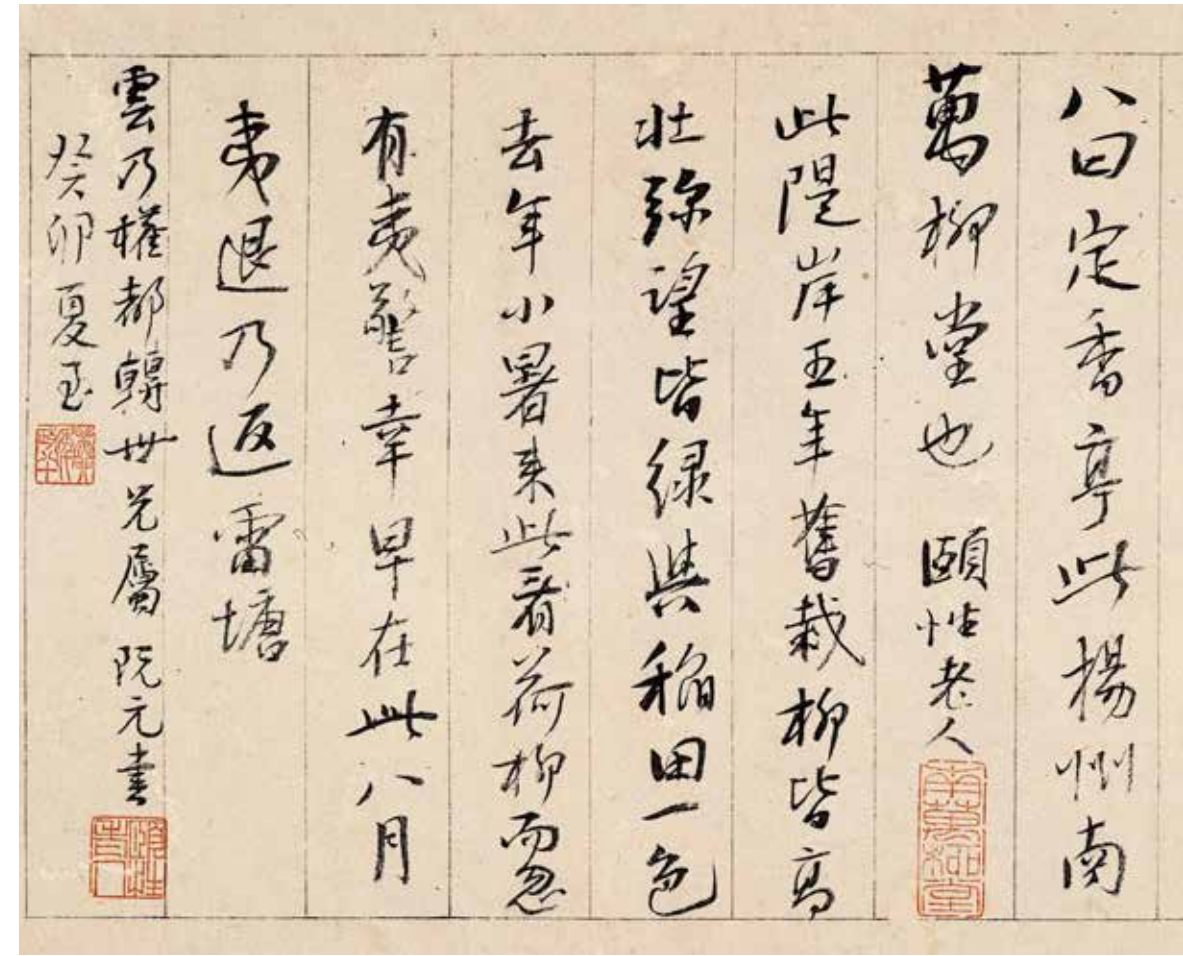 八曰定香亭此揚州南
萬柳堂也 頤性老人
南萬柳堂
此隄岸五年舊栽柳皆高
壯彌望皆綠與稻田一色
去年小暑來此看荷柳而忽
有夷警幸早在此八月
夷退乃返雷塘
雲乃權都轉世兄屬 阮元書
頤性老人
癸卯夏至